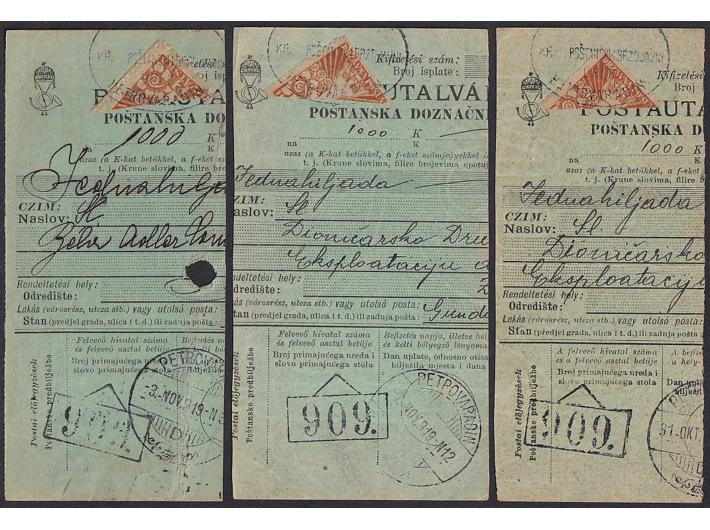 KR. POŠ
PETROVARADIN
POŠTANSKA DO
1000 K
K
azaz (a K-kat betükkel, a f-eket
t. j. (Krune slovima, filire
Jednahiljada
CZIM:
Naslov: Sl
Adler
Rendeltetési hely:
Odredište:
Lakás (városrész, utcza stb.) vagy utolsó posta:
Stan (predjel grada, ulica i t. d.) ili zadnja pošta:
Postai előjegyzések
Poštanske predbilježbe
Felvevő hivatal száma
és felvevő asztal betüje
Broj primajućega ureda i
slovo primajućega stola
909.
PETROVARADIN
-3.NOV.919-N
Kifizetési szám:
Broj isplate:
UTALVÁ
POŠTANSKA DOZNAČN
1000 K
na K
azaz (a K-kat betükkel, a f-eket számjegyekkel
t. j. (Krune slovima, filire brojevima
Jednahiljada
CZIM:
Naslov: Sl.
Dioničarsko Dru
Eksploataciju
Rendeltetési hely:
Odredište:
Lakás (városrész, utcza stb.) vagy utolsó posta:
Stan (predjel grada, ulica i t. d.) ili zadnja pošta:
Postai előjegyzések
Poštanske predbilježbe
Felvevő hivatal száma
és felvevő asztal betüje
Broj primajućega ureda i
slovo primajućega stola
Befizetés napja, illetve
és kelti bélyegző lenyoma
Dan uplate, odnosno otisa
bilježila mjesta i dana
909.
PETROVARADIN
NOV.919-N12
Kifizetési
Broj
POŠTAUTA
POŠTANSKA DO
1000 K
na K
azaz (a K-kat betükkel, a f-eket
t. j. (Krune slovima, filire
Jednahiljada
CZIM:
Naslov: Sl.
Dioničarsko
Eksploataciju
Rendeltetési hely:
Odredište:
Lakás (városrész, utcza stb.) vagy utolsó posta:
Stan (predjel grada, ulica i t. d.) ili zadnja pošta:
Postai előjegyzések
Poštanske predbilježbe
A felvevő hivatal száma
és a felvevő asztal betüje
Broj primajućega ureda i
slovo primajućega stola
909.
31-OKT